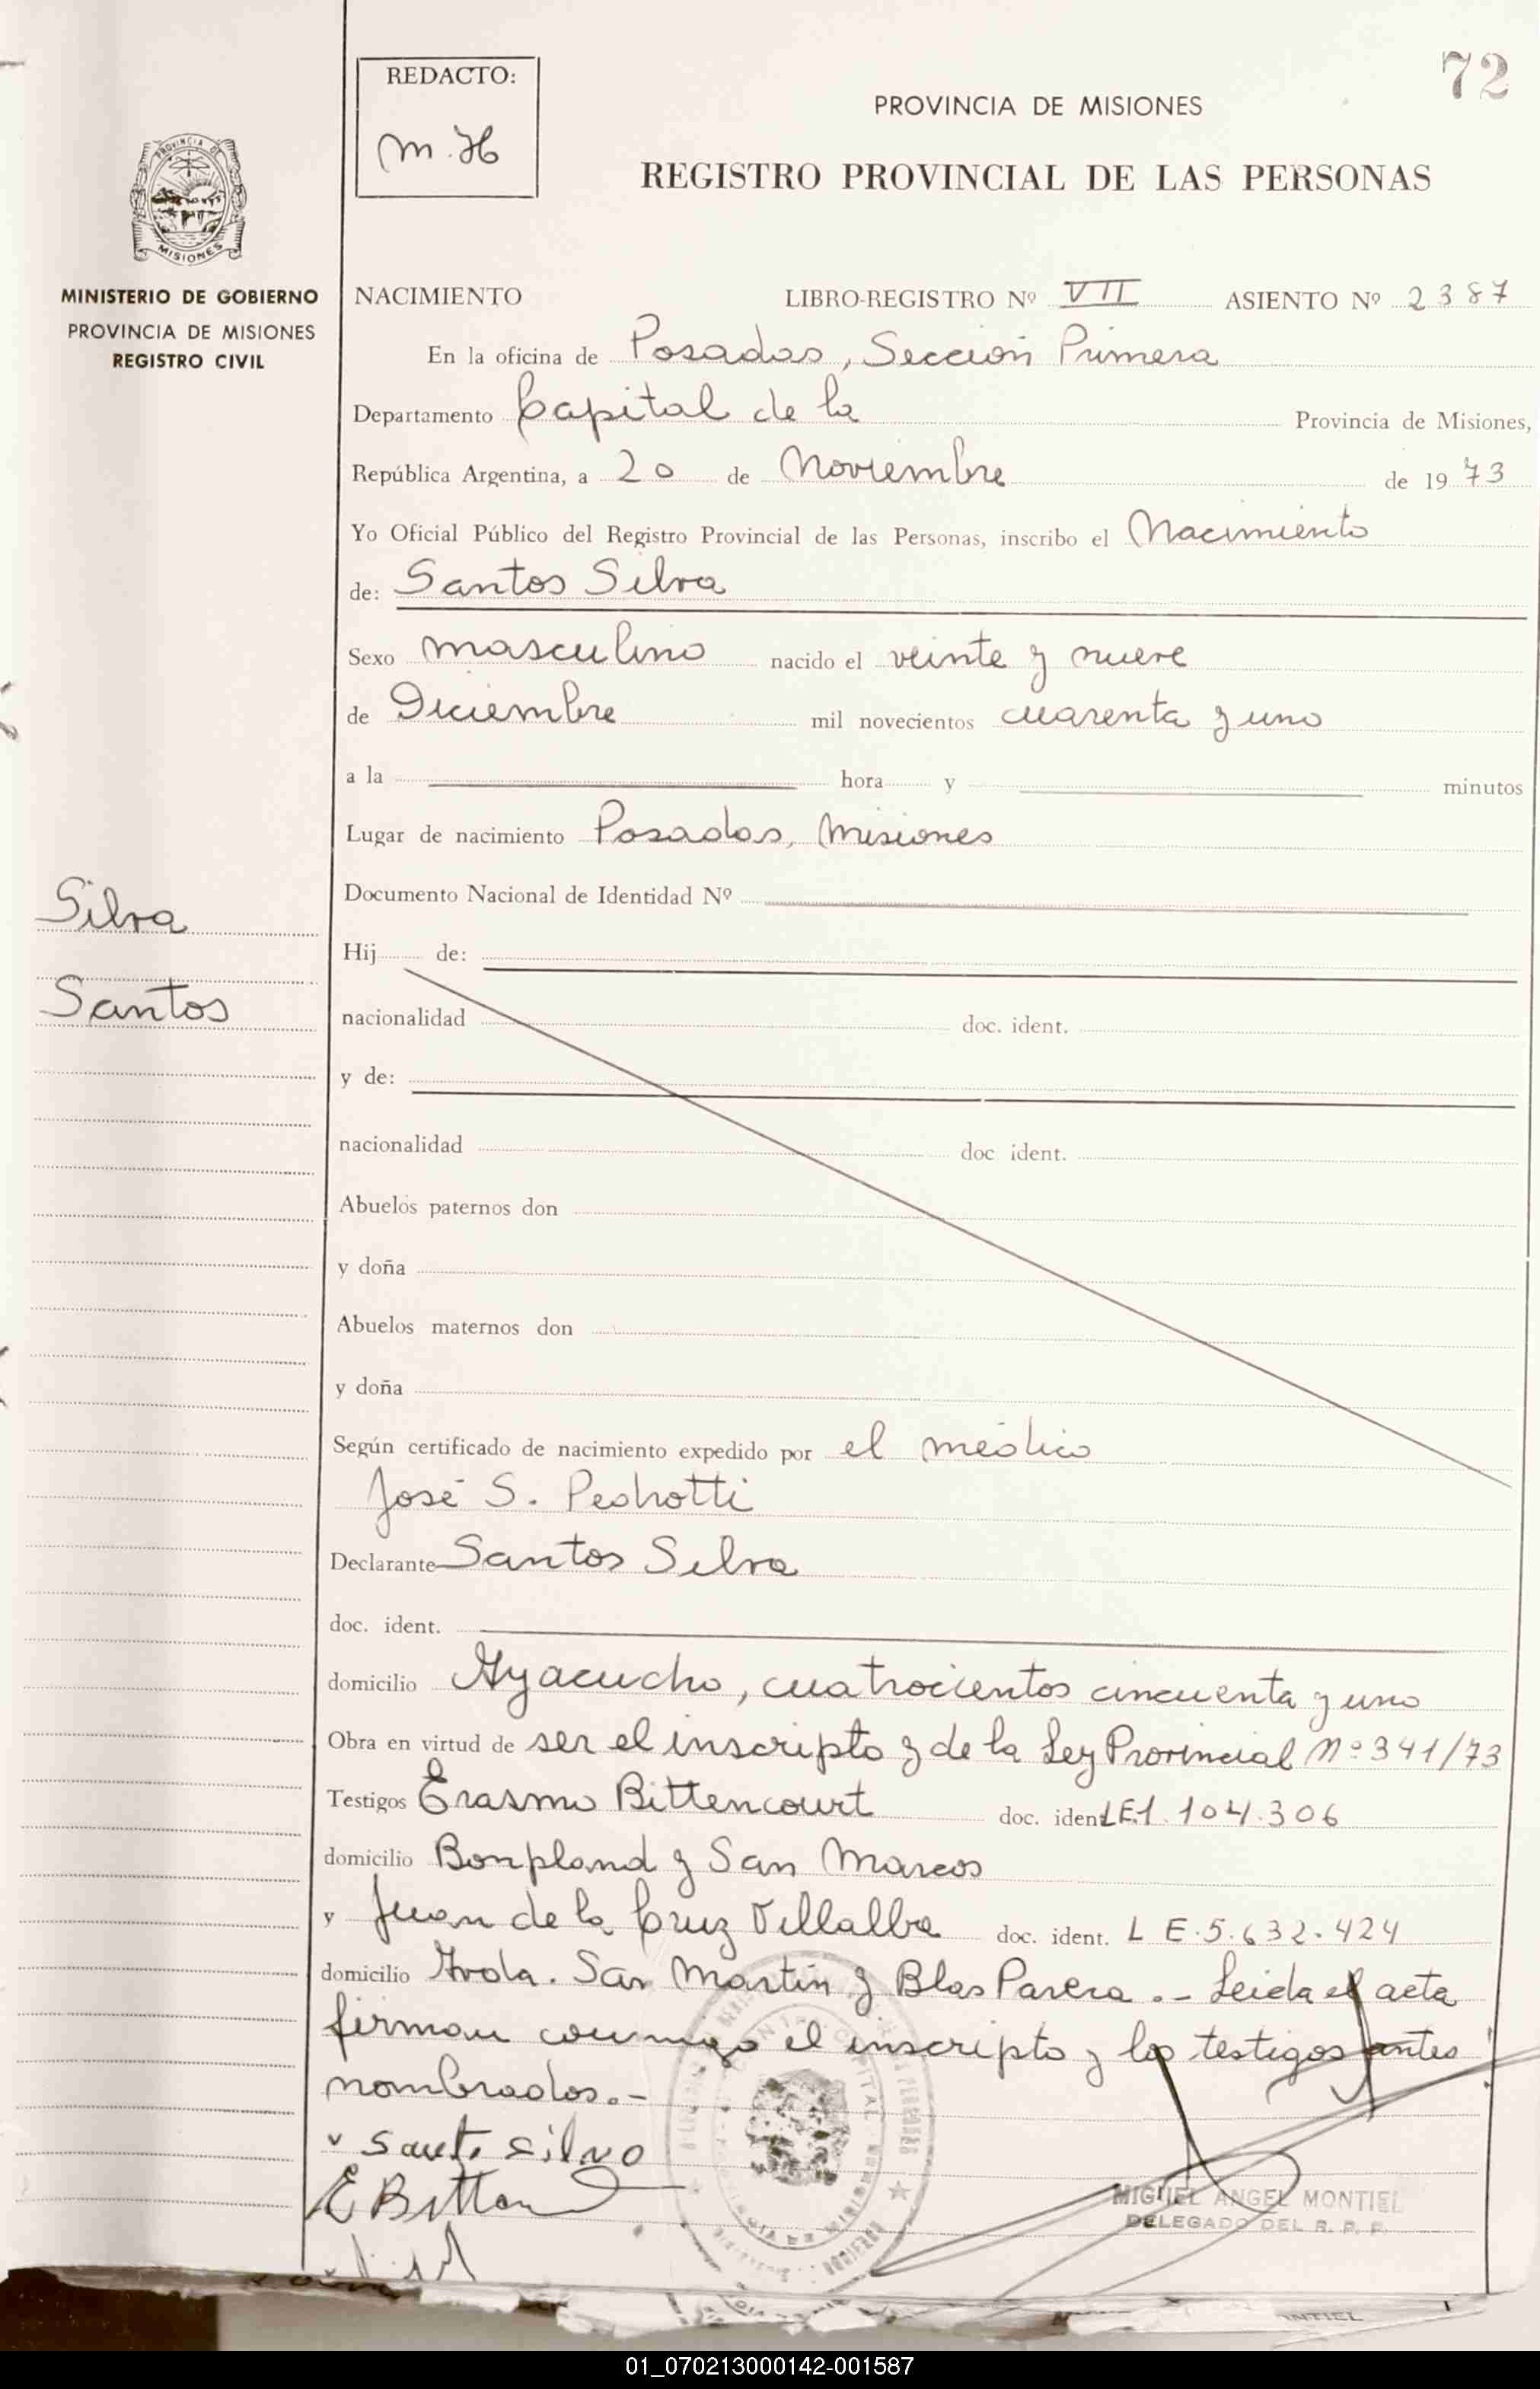 72
REDACTO:
M.H
PROVINCIA DE MISIONES
REGISTRO PROVINCIAL DE LAS PERSONAS
PROVINCIA DE
MISIONES
MINISTERIO DE GOBIERNO
PROVINCIA DE MISIONES
REGISTRO CIVIL
NACIMIENTO LIBRO-REGISTRO Nº VII ASIENTO Nº 2387
En la oficina de Posadas, Sección Primera
Departamento Capital de la Provincia de Misiones,
República Argentina, a 20 de Noviembre de 1973
Yo Oficial Público del Registro Provincial de las Personas, inscribo el Nacimiento
de: Santos Silva
Sexo masculino nacido el veinte y nueve
de Diciembre mil novecientos cuarenta y uno
a la hora y minutos
Lugar de nacimiento Posadas, Misiones
Documento Nacional de Identidad Nº
Silva
Santos
Hij de:
nacionalidad doc. ident.
y de:
nacionalidad doc ident.
Abuelos paternos don
y doña
Abuelos maternos don
y doña
Según certificado de nacimiento expedido por el médico
José S. Pedrotti
Declarante Santos Silva
doc. ident.
domicilio Ayacucho, cuatrocientos cincuenta y uno
Obra en virtud de ser el inscripto y de la Ley Provincial Nº 341/73
Testigos Erasmo Bittencourt doc. ident LE1.104.306
domicilio Bonpland y San Marcos
y Juan de la Cruz Villalba doc. ident. L E.5.632.424
domicilio Avda. San Martín y Blas Parera .- Leida el acta
firman conmigo el inscripto y los testigos antes
nombrados.-
Santo silvo
E Bitten
MIGUEL ANGEL MONTIEL
DELEGADO DEL R. P. P.
01_070213000142-001587